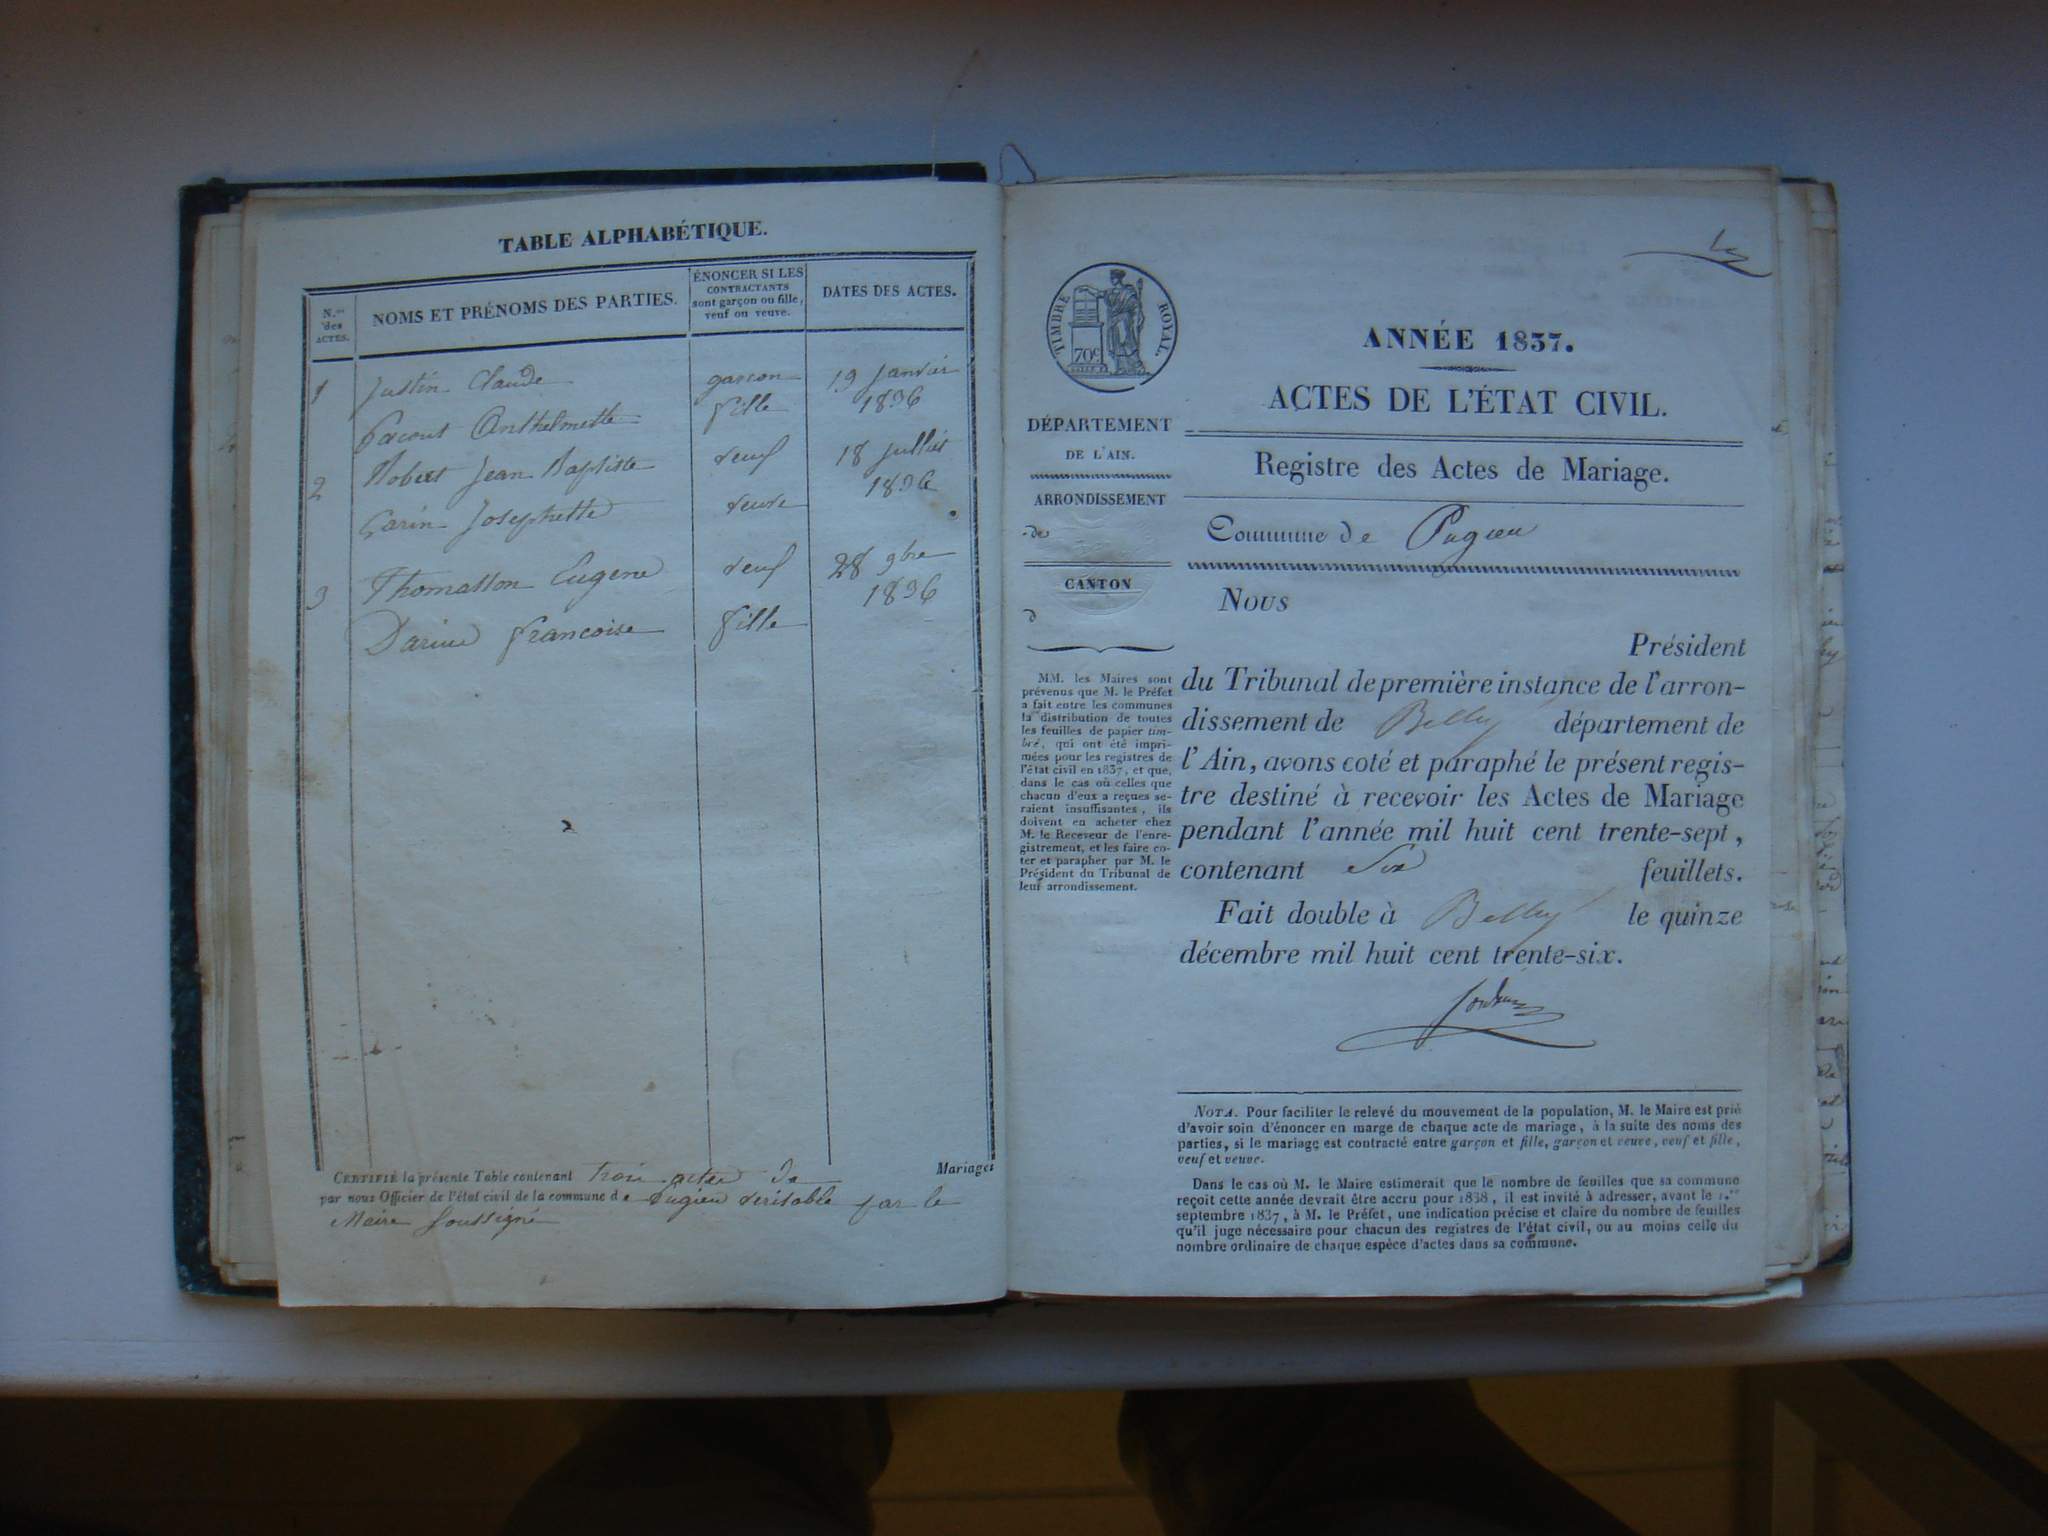 TABLE ALPHABÉTIQUE.
N.os des ACTES.
NOMS ET PRÉNOMS DES PARTIES.
ÉNONCER SI LES
CONTRACTANTS
sont garçon ou fille,
veuf ou veuve.
DATES DES ACTES.
1 Justin Claude garcon 19 Janvier
Anthelmette fille 1836
2 Robert Jean Baptiste veuf 18 juillet
Garin Josephette veuve 1836
3 Thomasson Eugene veuf 28 9bre
1836
Francoise fille
CERTIFIÉ la présente Table contenant trois actes de Mariages
par nous Officier de l'état civil de la commune de Pugieu veritable par le
Maire Soussigné
TIMBRE ROYAL
70c
DÉPARTEMENT
DE L'AIN.
ARRONDISSEMENT
de
CANTON
d
MM. les Maires sont
prévenus que M. le Préfet
a fait entre les communes
la distribution de toutes
les feuilles de papier tim-
bré, qui ont été impri-
mées pour les registres de
l'état civil en 1837, et que,
dans le cas où celles que
chacun d'eux a reçues se-
raient insuffisantes, ils
doivent en acheter chez
M. le Receveur de l'enre-
gistrement, et les faire co-
ter et parapher par M. le
Président du Tribunal de
leur arrondissement.
ANNÉE 1837.
ACTES DE L'ÉTAT CIVIL.
Registre des Actes de Mariage.
Commune de Pugieu
Nous
Président
du Tribunal de première instance de l'arron-
dissement de Belley département de
l'Ain, avons coté et paraphé le présent regis-
tre destiné à recevoir les Actes de Mariage
pendant l'année mil huit cent trente-sept,
contenant Six feuillets.
Fait double à Belley le quinze
décembre mil huit cent trente-six.
NOTA. Pour faciliter le relevé du mouvement de la population, M. le Maire est prié
d'avoir soin d'énoncer en marge de chaque acte de mariage, à la suite des noms des
parties, si le mariage est contracté entre garçon et fille, garçon et veuve, veuf et fille,
veuf et veuve.
Dans le cas où M. le Maire estimerait que le nombre de feuilles que sa commune
reçoit cette année devrait être accru pour 1838, il est invité à adresser, avant le 1.er
septembre 1837, à M. le Préfet, une indication précise et claire du nombre de feuilles
qu'il juge nécessaire pour chacun des registres de l'état civil, ou au moins celle du
nombre ordinaire de chaque espèce d'actes dans sa commune.